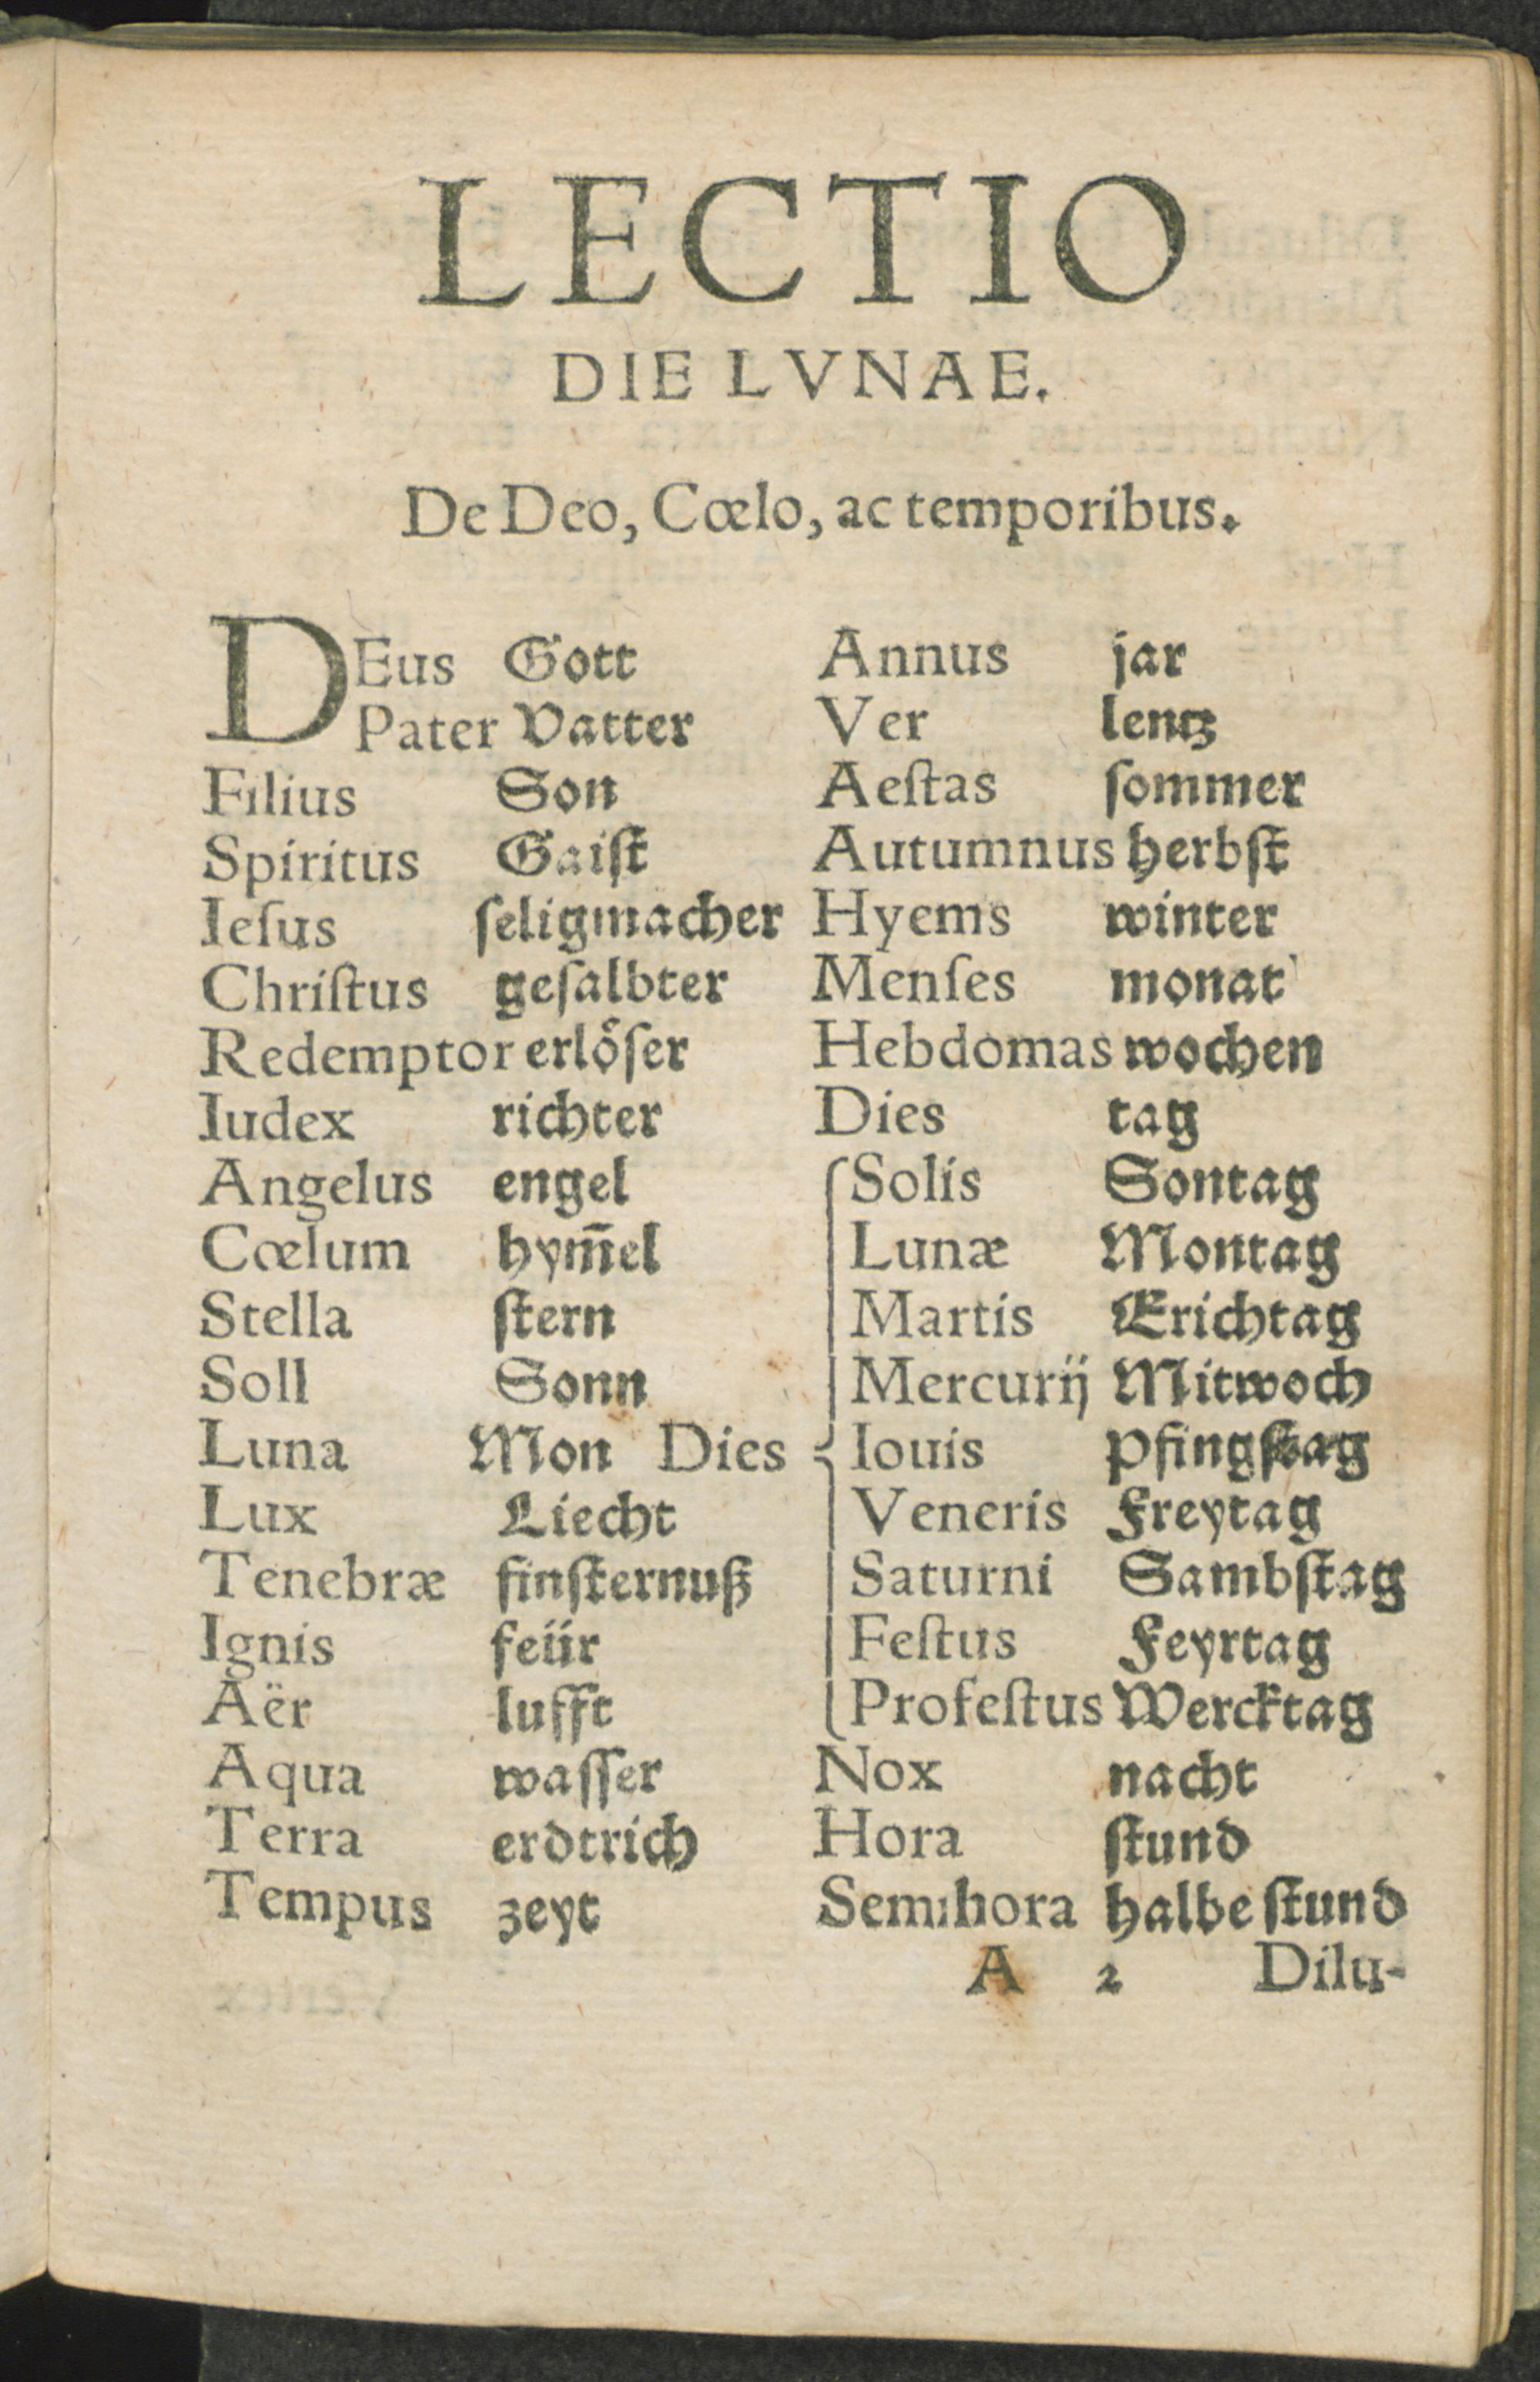 LECTIO
DIE LVNAE.
De Deo, Cœlo, ac temporibus.
DEus Gott
Pater Vatter
Filius Son
Spiritus Gaiſt
Ieſus ſeligmacher
Chriſtus geſalbter
Redemptor erlöſer
Iudex richter
Angelus engel
Cœlum hym̃el
Stella ſtern
Soll Sonn
Luna Mon
Lux Liecht
Tenebræ finſternuß
Ignis feür
Aër lufft
Aqua waſſer
Terra erdtrich
Tempus zeyt
Annus jar
Ver lentz
Aeſtas ſommer
Autumnus herbſt
Hyems winter
Menſes monat
Hebdomas wochen
Dies tag
Dies
Solis Sontag
Lunæ Montag
Martis Erichtag
Mercurij Mitwoch
Iouis Pfingſtag
Veneris Freytag
Saturni Sambſtag
Feſtus Feyrtag
Profeſtus Wercktag
Nox nacht
Hora ſtund
Semihora halbe ſtund
A 2 Dilu-